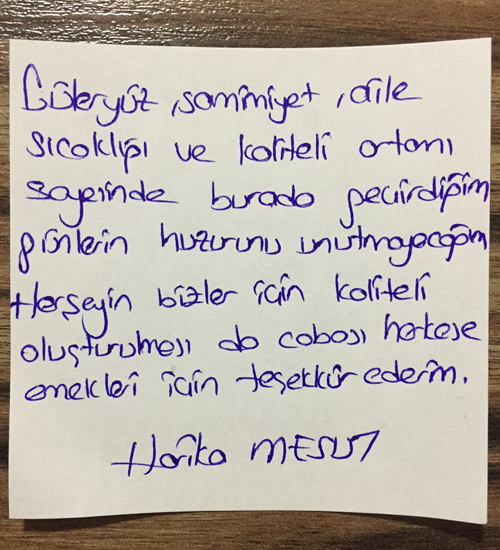 Güleryüz, samimiyet, aile
sıcaklığı ve kaliteli ortamı
sayesinde burada geçirdiğim
günlerin huzurunu unutmayacağım
Herşeyin bizler için kaliteli
oluşturulması da cabası herkese
emekleri için teşekkür ederim.
Harika MESUT